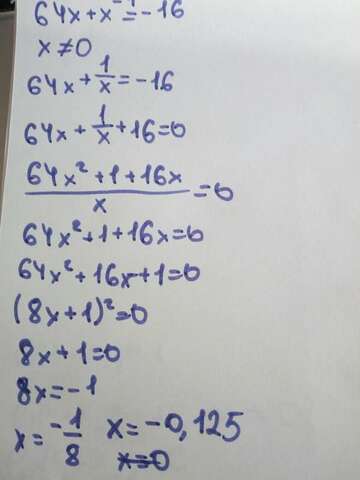 64x+x⁻¹=-16
x≠0
64x+1/x=-16
64x+1/x+16=0
(64x²+1+16x)/x=0
64x²+1+16x=0
64x²+16x+1=0
(8x+1)²=0
8x+1=0
8x=-1
x=-1/8 x=-0,125
x=0